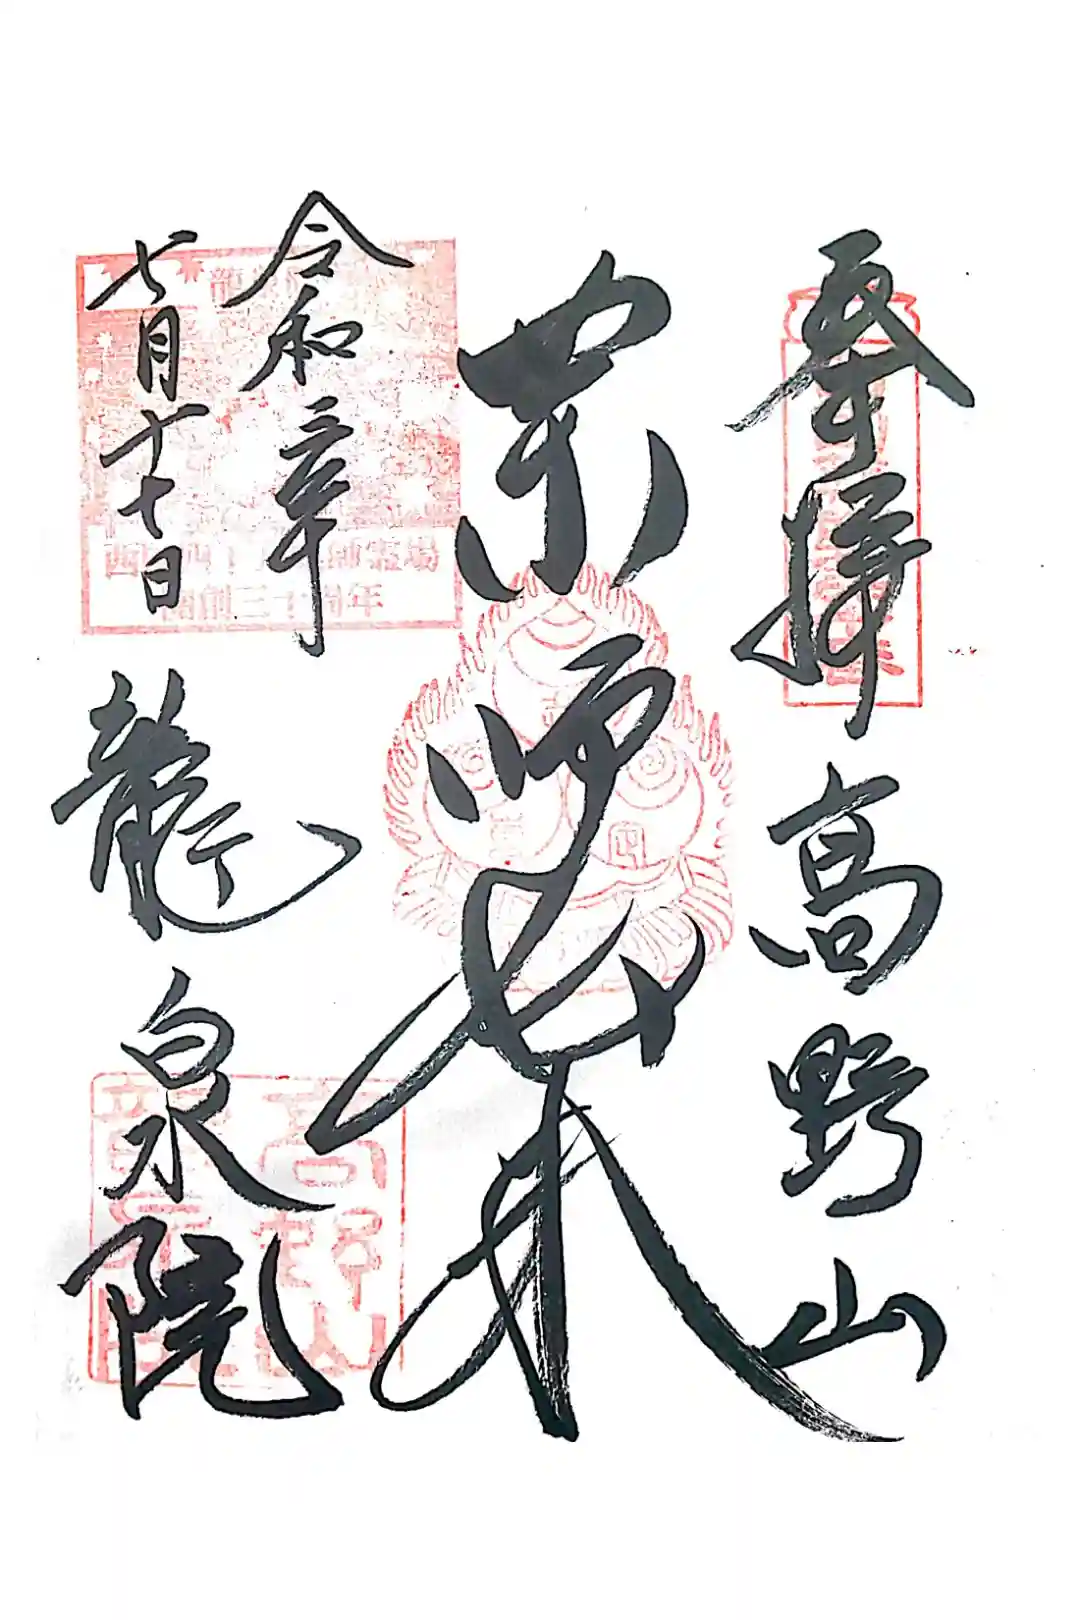 奉拝 高野山
薬師如来
令和 年
七月十七日
龍泉院
西国四十九薬師霊場
開創三十周年
高野山
龍泉院